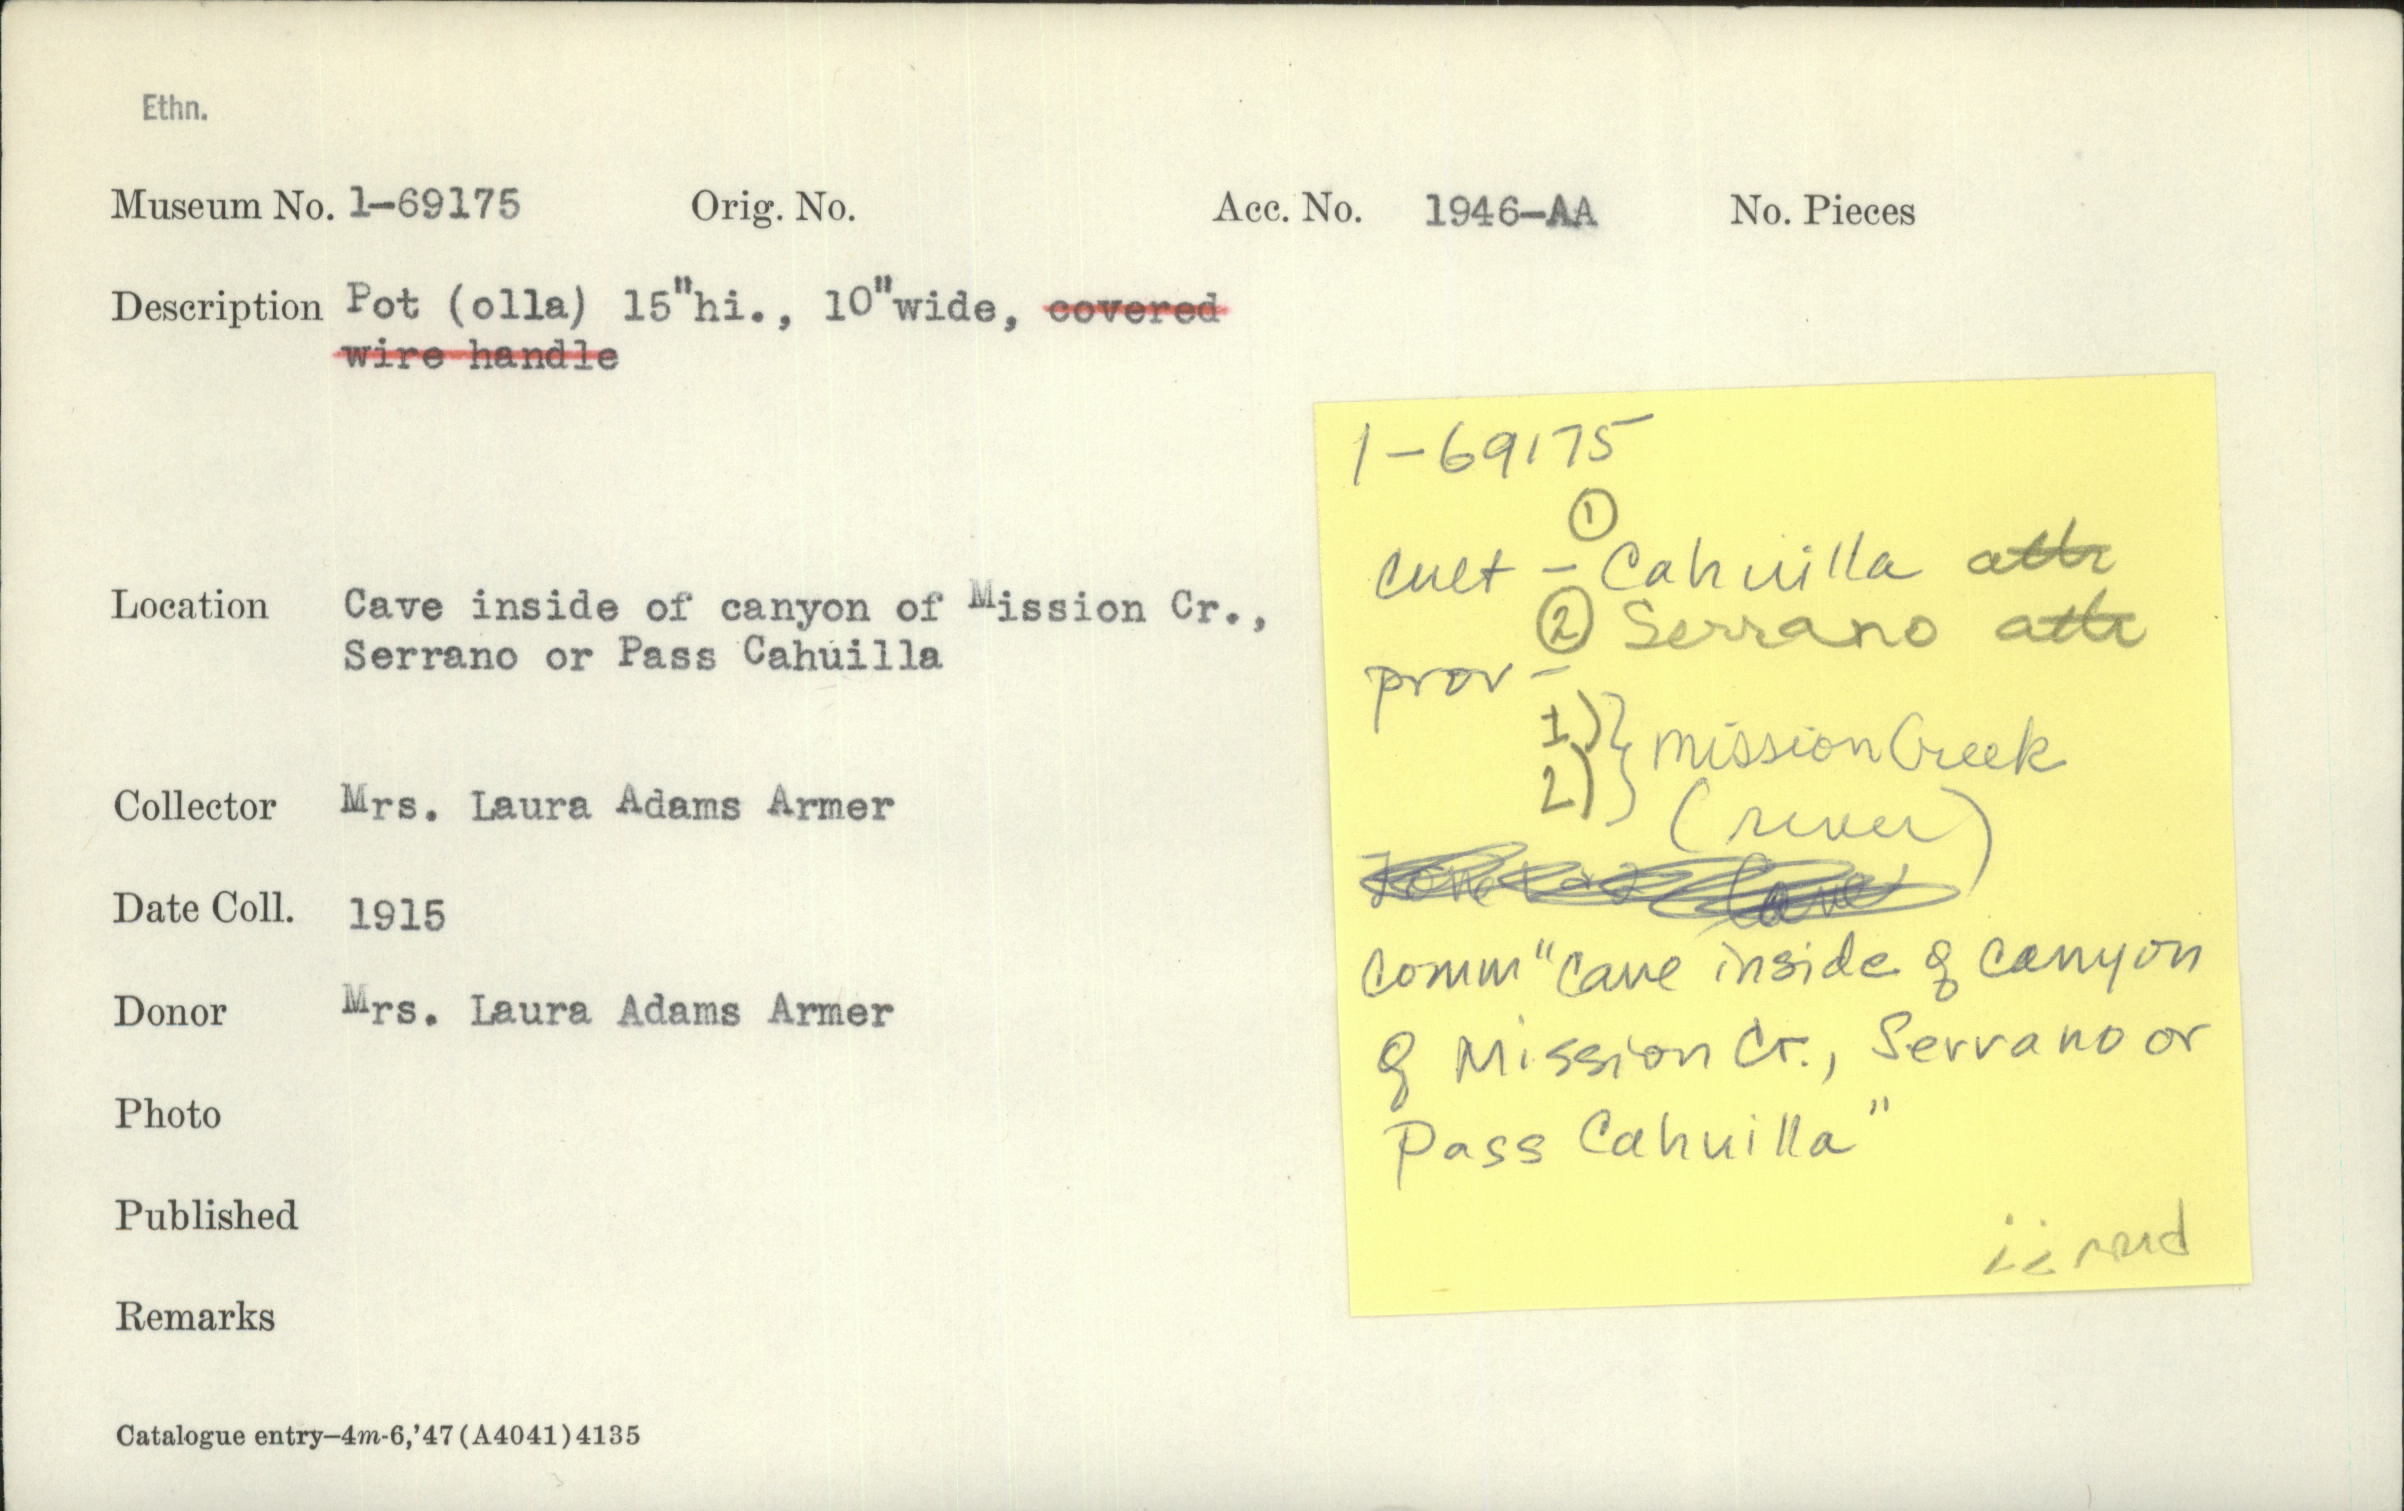 Ethn.
Museum No. 1-69175 Orig. No. Acc. No. 1946-AA No. Pieces
Description Pot (olla) 15"hi., 10"wide, covered
wire handle
Location Cave inside of canyon of Mission Cr.,
Serrano or Pass Cahuilla
Collector Mrs. Laura Adams Armer
Date Coll. 1915
Donor Mrs. Laura Adams Armer
Photo
Published
Remarks
Catalogue entry—4m-6,'47(A4041)4135
1-69175
①
cult - Cahuilla attr
② Serrano attr
prov -
1) } Mission Creek
2) }
(river)
Cave
Comm "Cave inside of canyon
of Mission Cr., Serrano or
Pass Cahuilla"